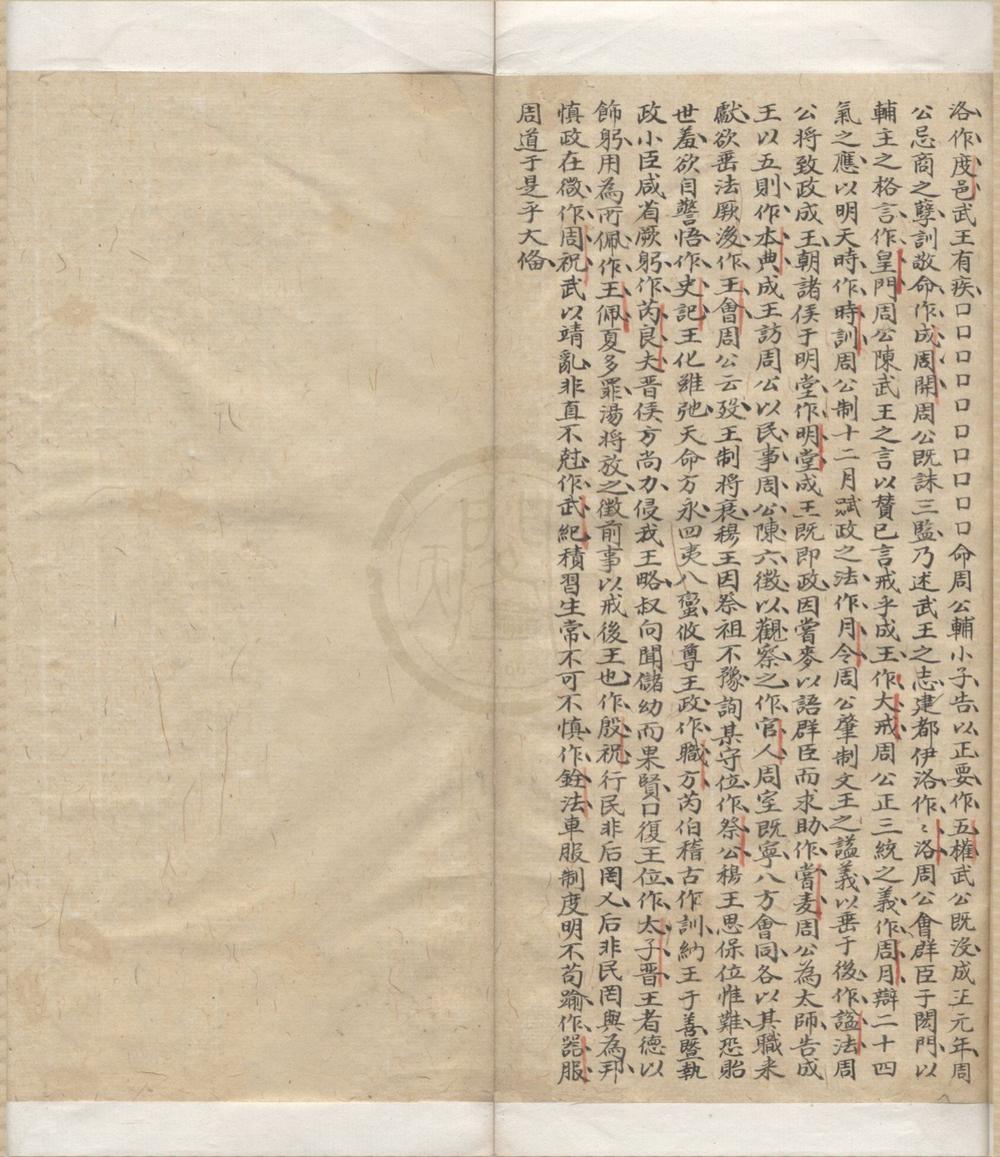 洛作度邑武王有疾口口口口口口口口口口命周公輔小子告以正要作五權武公既沒成王元年周
公忌商之孽訓敬命作成周開周公既誅三監乃述武王之志建都伊洛作〻洛周公會群臣于閎門以
輔主之格言作皇門周公陳武王之言以贊已言戒乎成王作大戒周公正三統之義作周月辯二十四
氣之應以明天時作時訓周公制十二月賦政之法作月令周公肈制文王之謚義以垂于後作謚法周
公将致政成王朝諸侯于明堂作明堂成王既即政因嘗麥以語群臣而求助作嘗麦周公為太師告成
王以五則作本典成王訪周公以民事周公陳六徵以觀察之作官人周室既寧八方會同各以其職来
獻欲垂法厥後作王會周公云歿王制将衰穆王因祭祖不豫詢某守位作祭公穆王思保位惟難恐貽
世羞欲自警悟作史記王化雖弛天命方永四夷八蠻攸尊王政作職方芮伯稽古作訓納王于善曁執
政小臣咸省厥躬作芮良夫晋侯方尚力侵我王略叔向聞儲幼而果賢口復王位作太子晋王者德以
飾躬用為所佩作王佩夏多罪湯将放之徵前事以戒後王也作殷祝行民非后罔乂后非民罔與為邦
慎政在微作周祝武以靖亂非直不尅作武紀積習生常不可不慎作銓法車服制度明不苟踰作器服
周道于是乎大俻